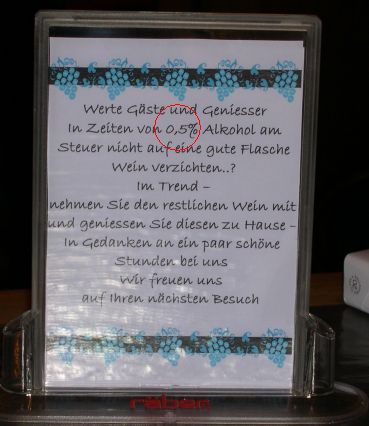 Werte Gäste und Geniesser
In Zeiten von 0,5% Alkohol am
Steuer nicht auf eine gute Flasche
Wein verzichten..?
Im Trend –
nehmen Sie den restlichen Wein mit
und geniessen Sie diesen zu Hause –
In Gedanken an ein paar schöne
Stunden bei uns
Wir freuen uns
auf Ihren nächsten Besuch
räber